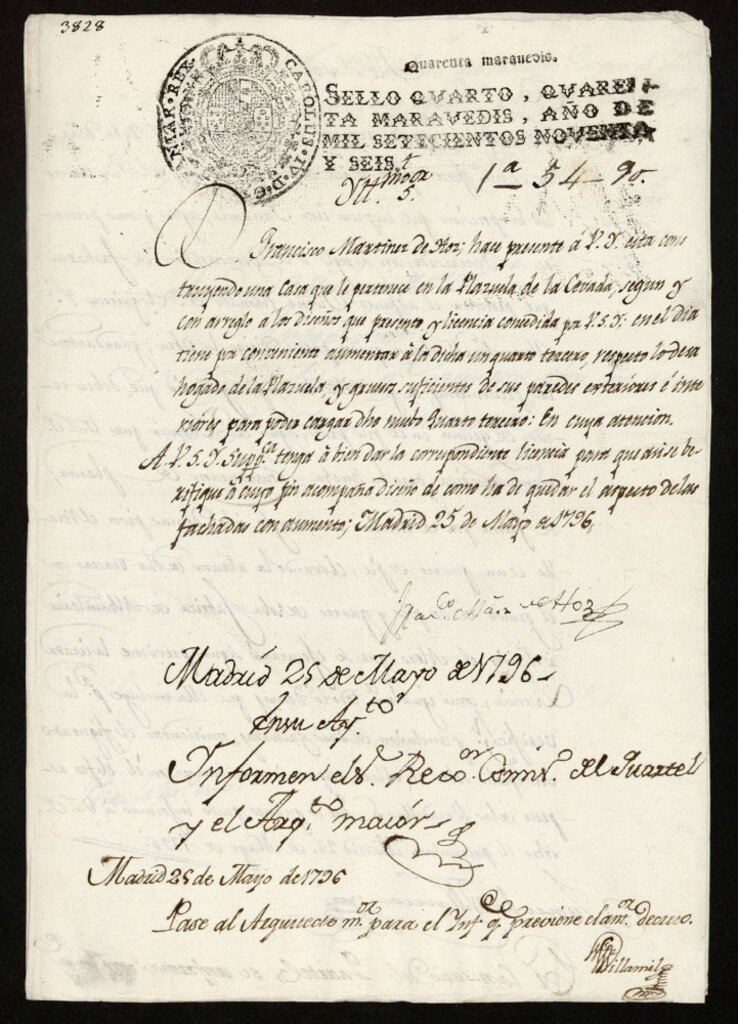 3828
CAROLUS·IV·D·G· HISPANIAR·REX·
Quarenta maravedis.
SELLO QVARTO, QVAREN-
TA MARAVEDIS, AÑO DE
MIL SETECIENTOS NOVENTA
Y SEIS.
Ytt.mo or 5.
1ª 54-90.
Francisco Martinez de Hoz; hace presente á V.S.Y. esta cons
truyendo una Casa que le pertenece en la Plazuela de la Cevada, segun y
con arreglo á los diseños que presentó y licencia concedida por V.S.Y: en el dia
tiene por conveniente aumentar á la dicha un quarto tercero, respecto lo desa
hogado de la Plazuela, y gruesos suficientes de sus paredes exteriores é inte
riores para poder cargar dho nuebo Quarto tercero: En cuya atencion.
A V.S.Y. Suppca tenga á bien dar la correspondiente licencia para que asi se be
rifique á cuyo fin acompaña diseño de como ha de quedar el aspecto de las
fachadas con aumento; Madrid 25 de Mayo de 1796.
Franco Mârz de Hoz
Madrid 25 de Mayo de 1796
En su Ayto
Informen el Sr. Rexor Comisº. del Quartel
y el Arqto maiór
Madrid 25 de Mayo de 1796
Pase al Arquitecto mor para el Infe qe previene el antr decreto.
Villamil